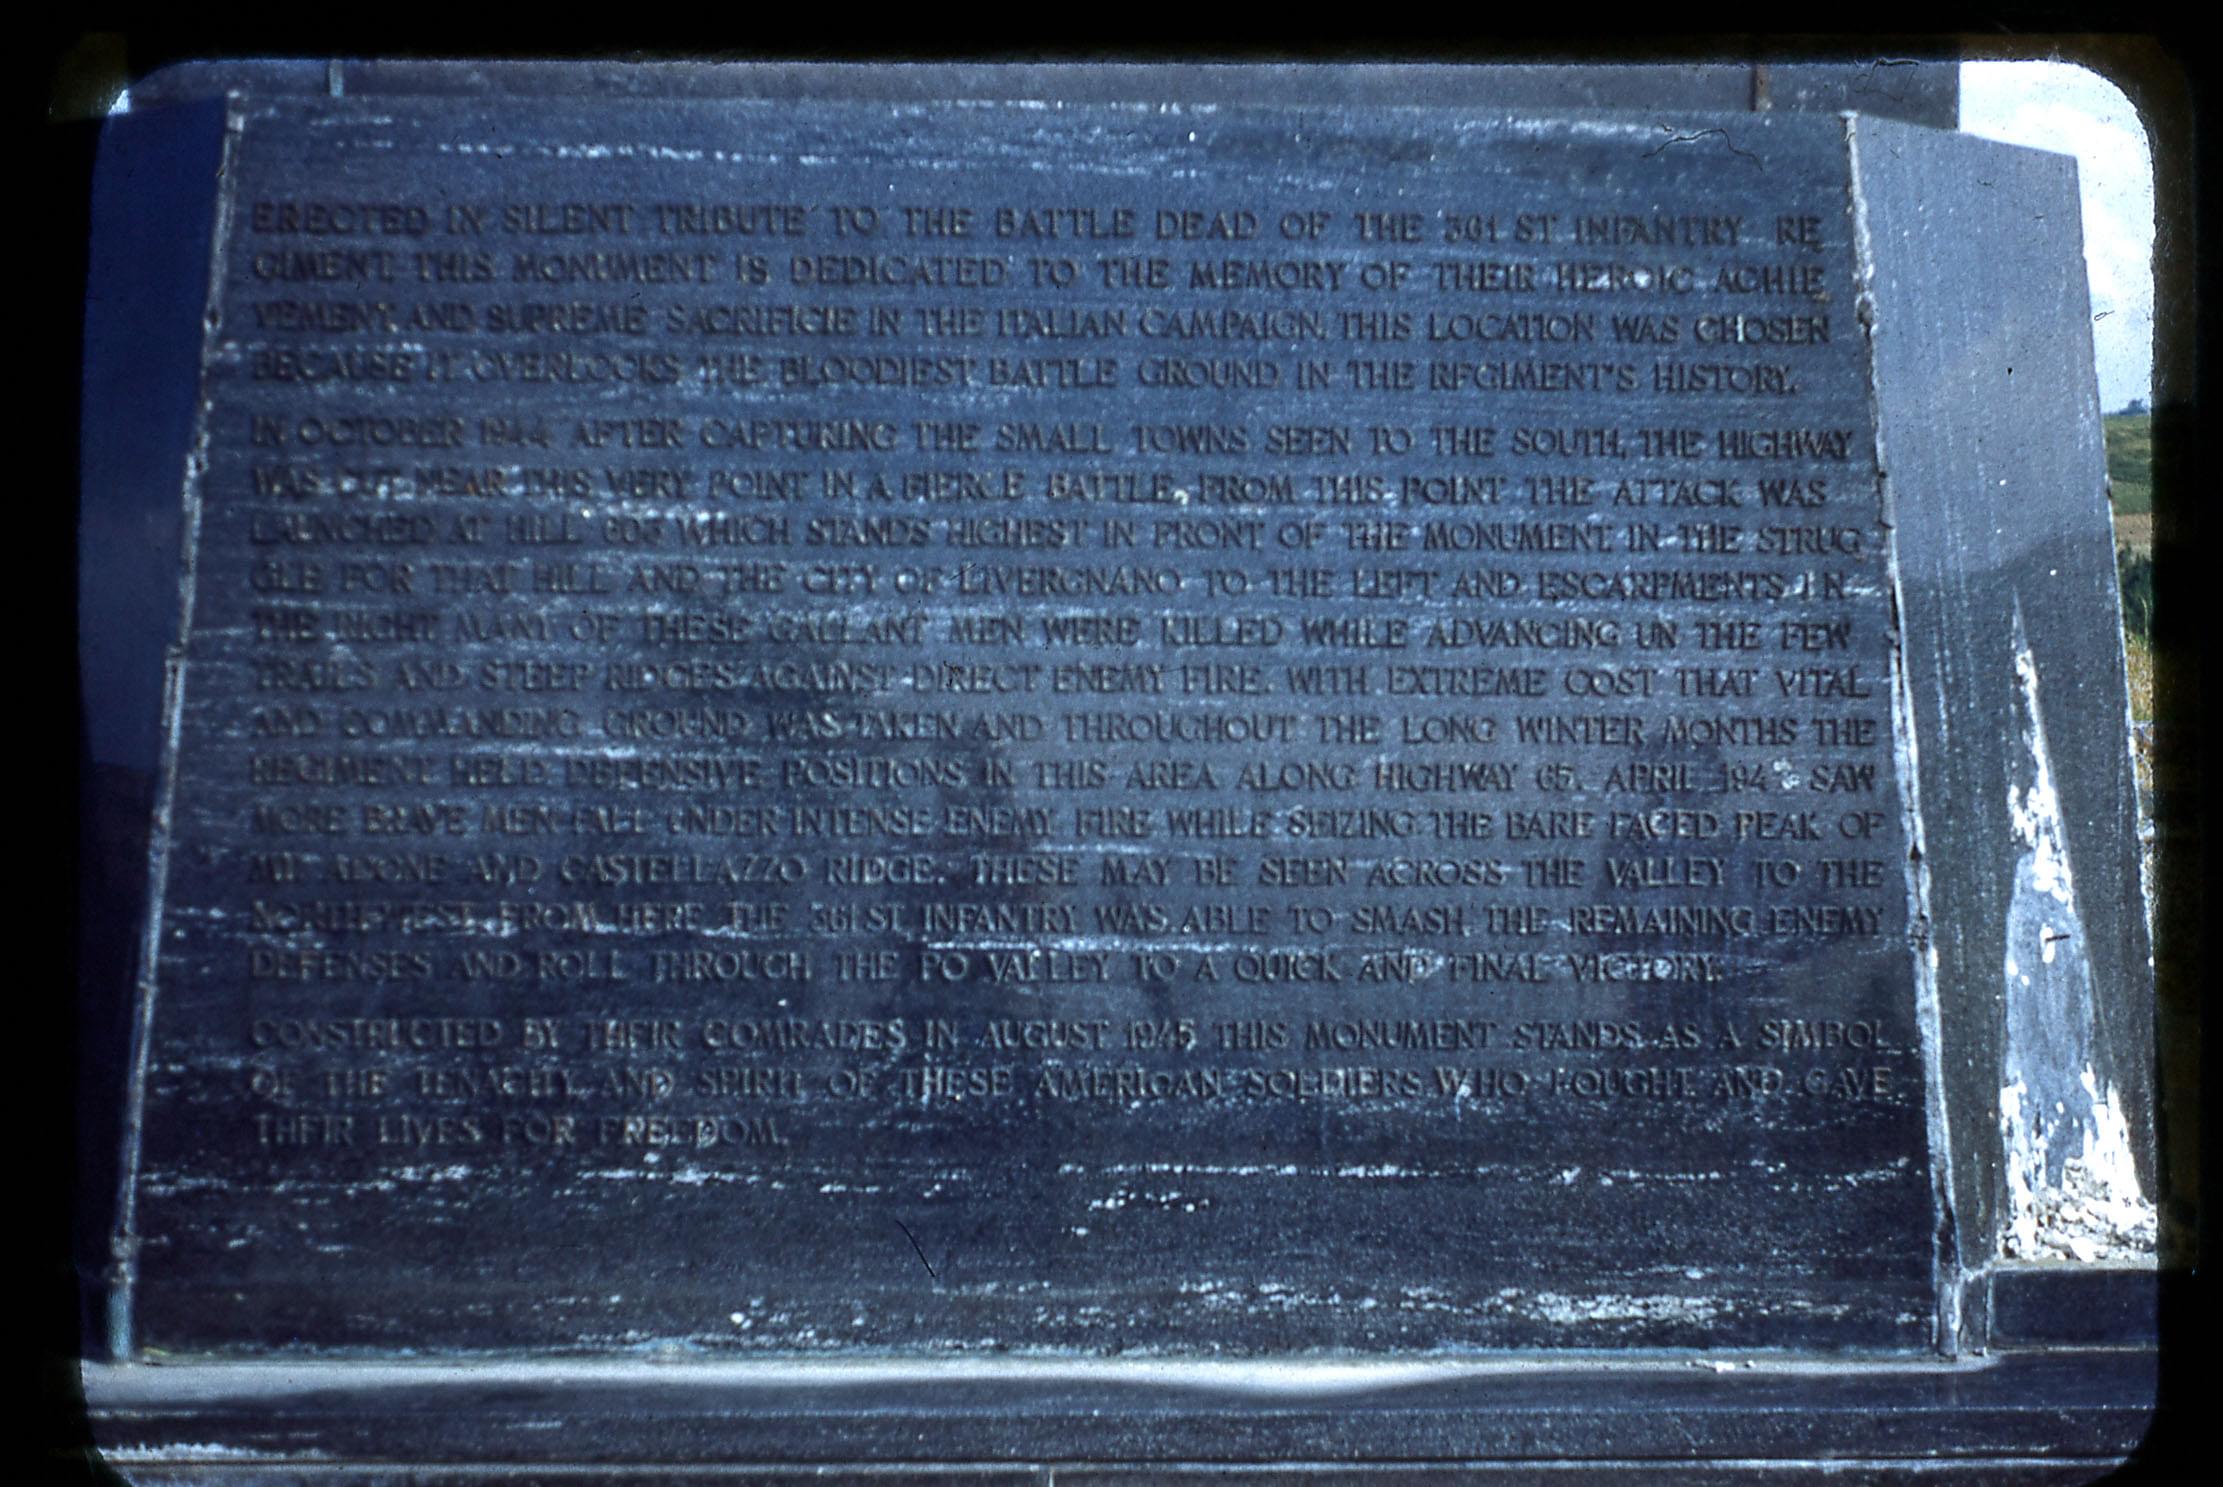 ERECTED IN SILENT TRIBUTE TO THE BATTLE DEAD OF THE 361 ST INFANTRY RE
GIMENT THIS MONUMENT IS DEDICATED TO THE MEMORY OF THEIR HEROIC ACHIE
VEMENT AND SUPREME SACRIFICIE IN THE ITALIAN CAMPAIGN. THIS LOCATION WAS CHOSEN
BECAUSE IT OVERLOOKS THE BLOODIEST BATTLE GROUND IN THE REGIMENT'S HISTORY.
IN OCTOBER 1944 AFTER CAPTURING THE SMALL TOWNS SEEN TO THE SOUTH, THE HIGHWAY
WAS CUT NEAR THIS VERY POINT IN A FIERCE BATTLE. FROM THIS POINT THE ATTACK WAS
LAUNCHED AT HILL 603 WHICH STANDS HIGHEST IN FRONT OF THE MONUMENT IN THE STRUG
GLE FOR THAT HILL AND THE CITY OF LIVERGNANO TO THE LEFT AND ESCARPMENTS IN
THE RIGHT MANY OF THESE GALLANT MEN WERE KILLED WHILE ADVANCING UN THE FEW
TRAILS AND STEEP RIDGES AGAINST DIRECT ENEMY FIRE. WITH EXTREME COST THAT VITAL
AND COMMANDING GROUND WAS TAKEN AND THROUGHOUT THE LONG WINTER MONTHS THE
REGIMENT HELD DEFENSIVE POSITIONS IN THIS AREA ALONG HIGHWAY 65. APRIL 1945 SAW
MORE BRAVE MEN FALL UNDER INTENSE ENEMY FIRE WHILE SEIZING THE BARE FACED PEAK OF
MT ADONE AND CASTELLAZZO RIDGE. THESE MAY BE SEEN ACROSS THE VALLEY TO THE
NORTHWEST. FROM HERE THE 361 ST INFANTRY WAS ABLE TO SMASH THE REMAINING ENEMY
DEFENSES AND ROLL THROUGH THE PO VALLEY TO A QUICK AND FINAL VICTORY.
CONSTRUCTED BY THEIR COMRADES IN AUGUST 1945 THIS MONUMENT STANDS AS A SIMBOL
OF THE TENACITY AND SPIRIT OF THESE AMERICAN SOLDIERS WHO FOUGHT AND GAVE
THEIR LIVES FOR FREEDOM.